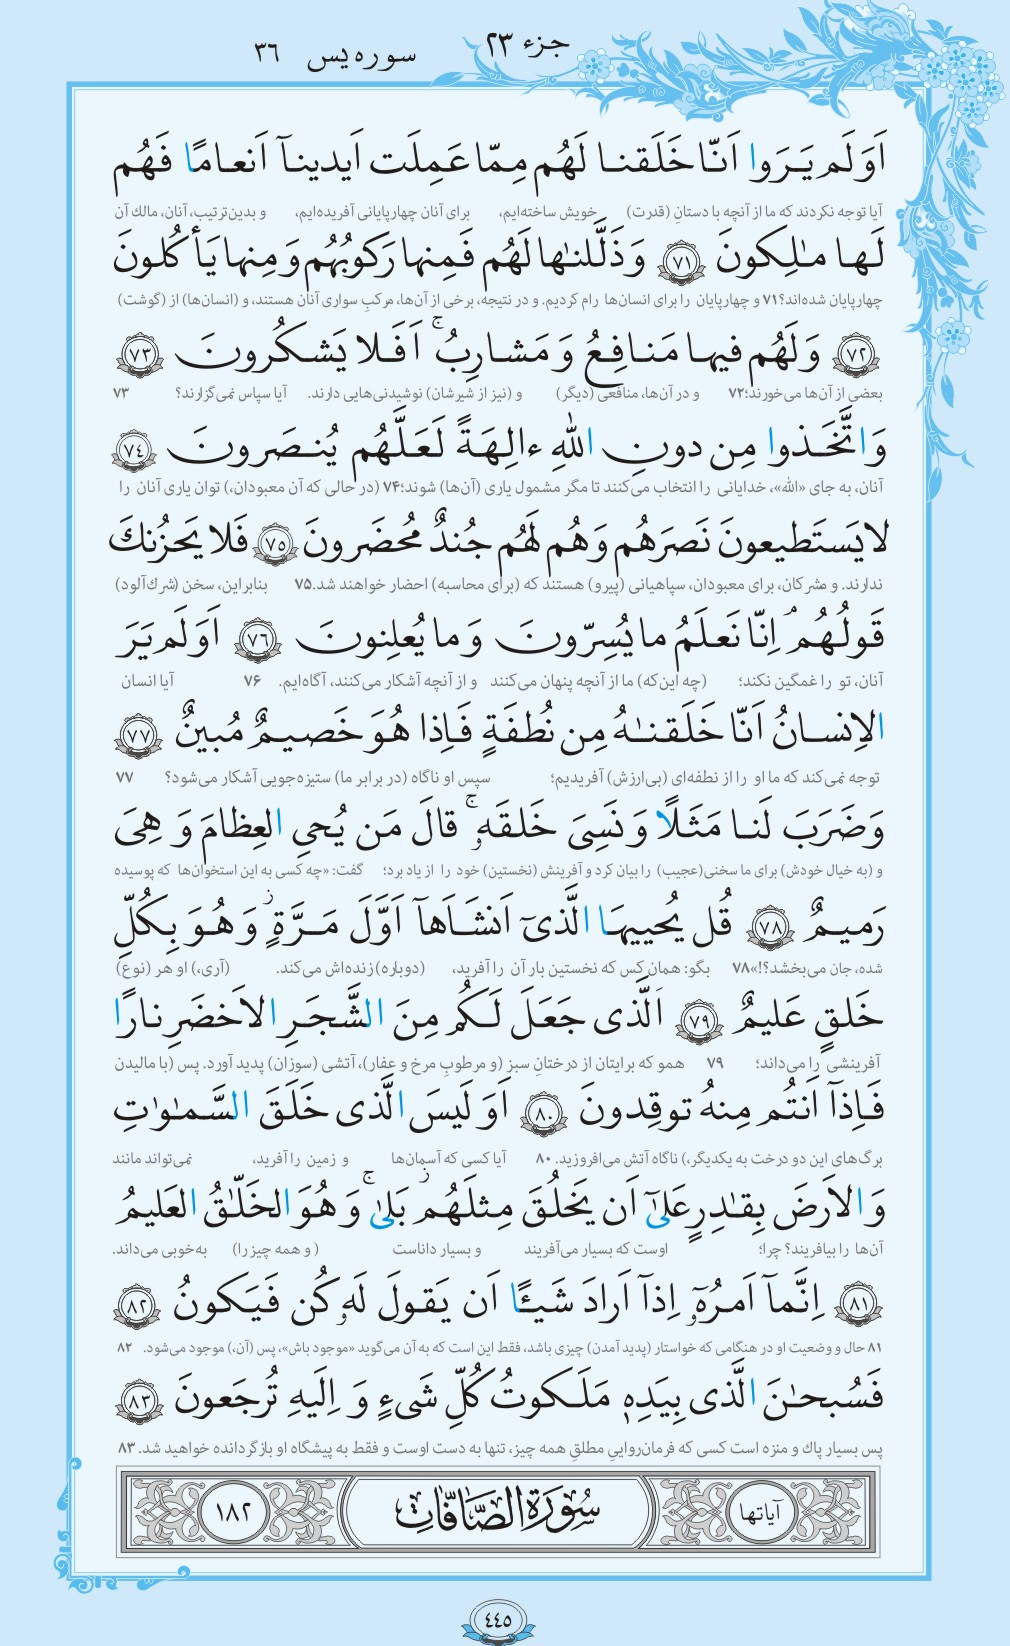 جزء ۲۳
سوره یس ۳۶
اَوَلَم یَرَوا اَنّا خَلَقنا لَهُم مِمّا عَمِلَت اَیدینآ اَنعامًا فَهُم
آیا توجه نکردند که ما از آنچه با دستانِ (قدرت) خویش ساخته‌ایم، برای آنان چهارپایانی آفریده‌ایم، و بدین‌ترتیب، آنان، مالك آن
لَها مٰلِکونَ ﴿۷۱﴾ وَذَلَّلنٰها لَهُم فَمِنها رَکوبُهُم وَمِنها یَأکُلونَ
چهارپایان شده‌اند؟۷۱ و چهارپایان را برای انسان‌ها رام کردیم. و در نتیجه، برخی از آن‌ها، مرکبِ سواری آنان هستند، و (انسان‌ها) از (گوشت)
﴿۷۲﴾ وَلَهُم فیها مَنافِعُ وَ مَشارِبُ ۚ اَفَلا یَشکُرونَ ﴿۷۳﴾
بعضی از آن‌ها می‌خورند؛۷۲ و در آن‌ها، منافعی (دیگر) و (نیز از شیرشان) نوشیدنی‌هایی دارند. آیا سپاس نمی‌گزارند؟ ۷۳
وَاتَّخَذوا مِن دونِ اللهِ ءالِهَةً لَعَلَّهُم یُنصَرونَ ﴿۷٤﴾
آنان، به جای «الله»، خدایانی را انتخاب می‌کنند تا مگر مشمول یاری (آن‌ها) شوند؛۷۴ (در حالی که آن معبودان،) توان یاری آنان را
لا یَستَطیعونَ نَصرَهُم وَهُم لَهُم جُندٌ مُحضَرونَ ﴿۷٥﴾ فَلا یَحزُنكَ
ندارند. و مشرکان، برای معبودان، سپاهیانی (پیرو) هستند که (برای محاسبه) احضار خواهند شد.۷۵ بنابراین، سخن (شرك‌آلود)
قَولُهُم ۘ اِنّا نَعلَمُ ما یُسِرّونَ وَ ما یُعلِنونَ ﴿۷٦﴾ اَوَلَم یَرَ
آنان، تو را غمگین نکند؛ (چه این‌که) ما از آنچه پنهان می‌کنند و از آنچه آشکار می‌کنند، آگاه‌ایم. ۷۶ آیا انسان
الاِنسانُ اَنّا خَلَقنٰهُ مِن نُطفَةٍ فَاِذا هُوَ خَصیمٌ مُبینٌ ﴿۷۷﴾
توجه نمی‌کند که ما او را از نطفه‌ای (بی‌ارزش) آفریدیم؛ سپس او ناگاه (در برابر ما) ستیزه‌جویی آشکار می‌شود؟ ۷۷
وَضَرَبَ لَنا مَثَلًا وَ نَسِیَ خَلقَهٗ ۚ قالَ مَن یُحیِ العِظامَ وَ هِیَ
و (به خیال خودش) برای ما سخنی(عجیب) را بیان کرد و آفرینش (نخستین) خود را از یاد برد؛ گفت: «چه کسی به این استخوان‌ها که پوسیده
رَمیمٌ ﴿۷۸﴾ قُل یُحییهَا الَّذیٓ اَنشَاَهآ اَوَّلَ مَرَّةٍ ۖ وَ هُوَ بِکُلِّ
شده، جان می‌بخشد؟!»۷۸ بگو: همان کس که نخستین بار آن را آفرید، (دوباره)زنده‌اش می‌کند. (آری،) او هر (نوع)
خَلقٍ عَلیمٌ ﴿۷۹﴾ اَلَّذی جَعَلَ لَکُم مِنَ الشَّجَرِ الاَخضَرِ نارًا
آفرینشی را می‌داند؛ ۷۹ همو که برایتان از درختانِ سبز (و مرطوبِ مرخ و عفار)، آتشی (سوزان) پدید آورد. پس (با مالیدن
فَاِذآ اَنتُم مِنهُ توقِدونَ ﴿۸۰﴾ اَوَ لَیسَ الَّذی خَلَقَ السَّمٰوٰتِ
برگ‌های این دو درخت به یکدیگر،) ناگاه آتش می‌افروزید. ۸۰ آیا کسی که آسمان‌ها و زمین را آفرید، نمی‌تواند مانند
وَالاَرضَ بِقٰدِرٍ عَلیٰٓ اَن یَخلُقَ مِثلَهُم ۖ بَلیٰ ۚ وَ هُوَ الخَلّٰقُ العَلیمُ
آن‌ها را بیافریند؟ چرا؛ اوست که بسیار می‌آفریند و بسیار داناست ( و همه چیز را) به‌خوبی می‌داند.
﴿۸۱﴾ اِنَّمآ اَمرُهٗٓ اِذآ اَرادَ شَیـًٔا اَن یَقولَ لَهٗ کُن فَیَکونُ ﴿۸۲﴾
۸۱ حال و وضعیت او در هنگامی که خواستار (پدید آمدن) چیزی باشد، فقط این است که به آن می‌گوید «موجود باش»، پس (آن،) موجود می‌شود. ۸۲
فَسُبحٰنَ الَّذی بِیَدِهٖ مَلَکوتُ کُلِّ شَیءٍ وَ اِلَیهِ تُرجَعونَ ﴿۸۳﴾
پس بسیار پاك و منزه است کسی که فرمان‌رواییِ مطلقِ همه چیز، تنها به دست اوست و فقط به پیشگاه او بازگردانده خواهید شد. ۸۳
آیاتها سُورَةُ الصَّافَّاتِ ۱۸۲
٤٤٥